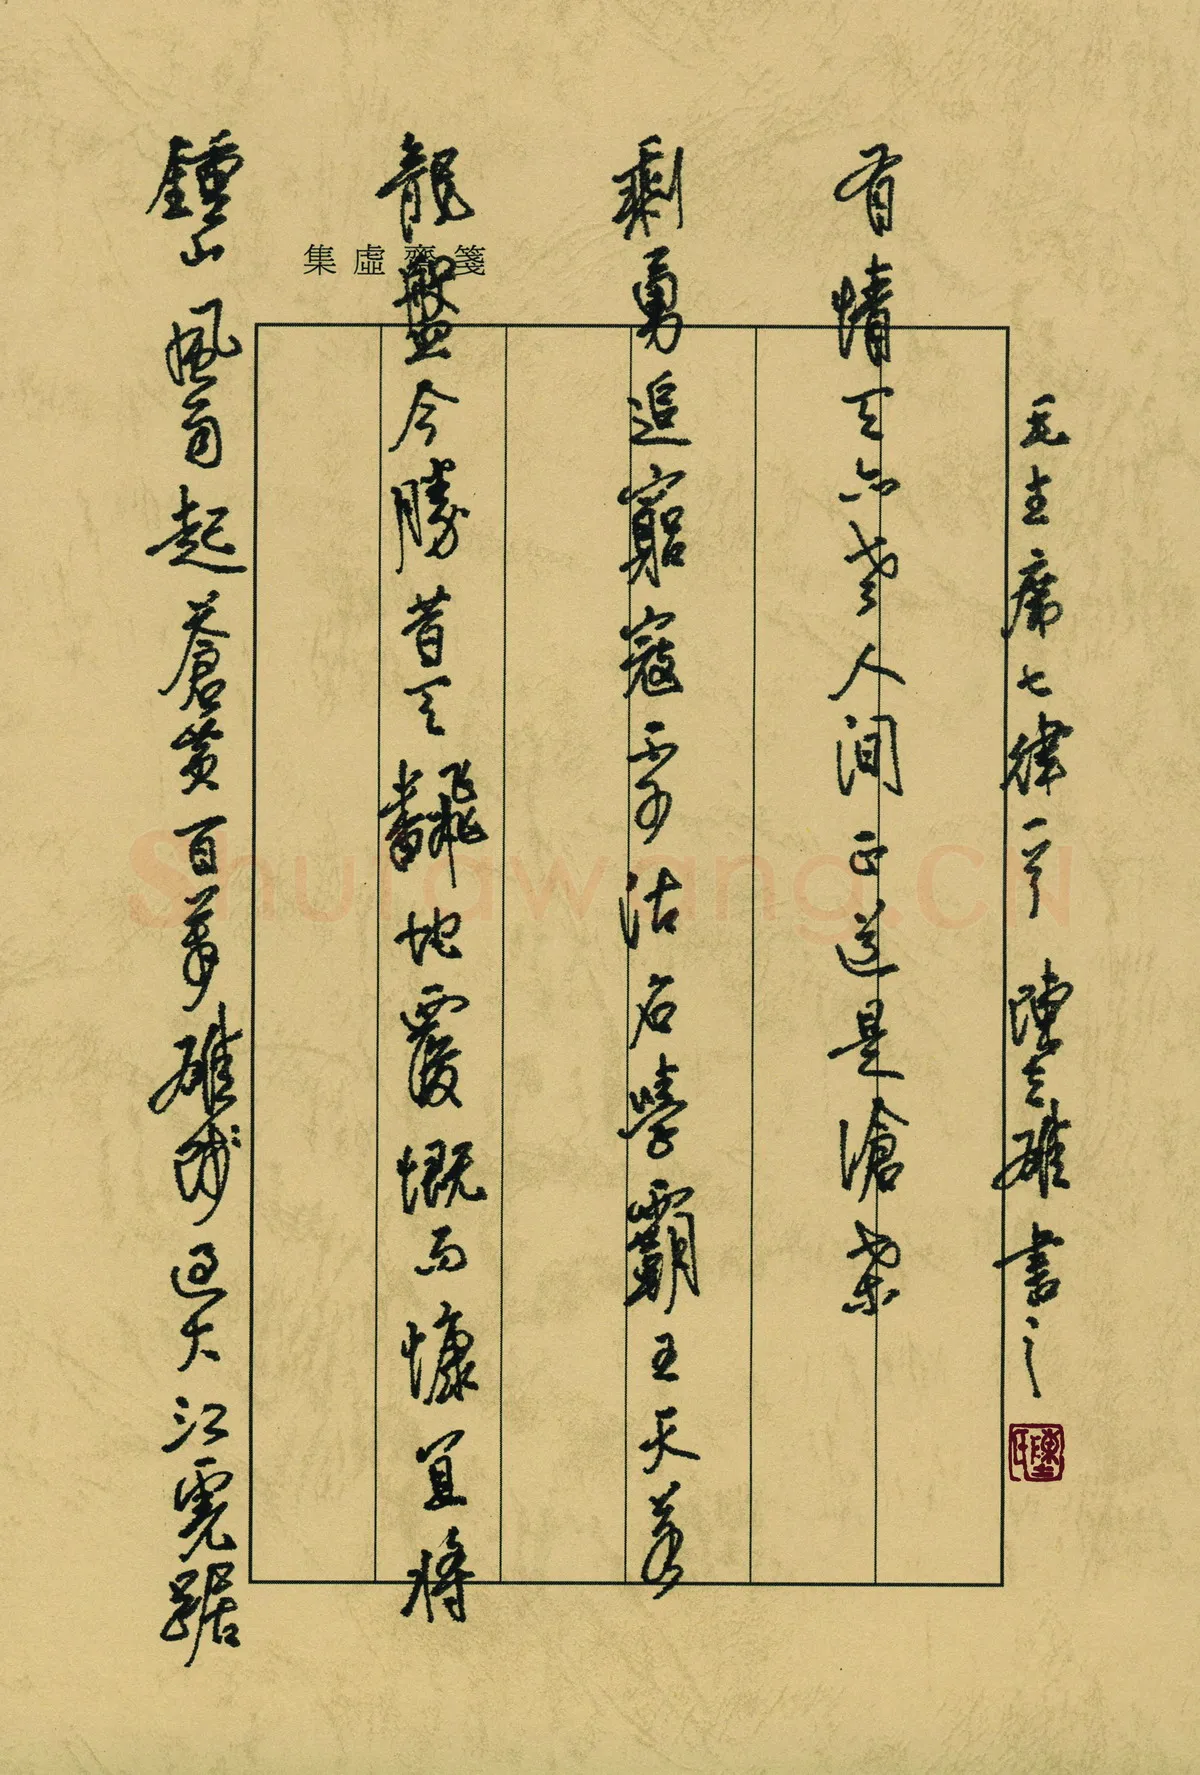 集虛齋箋
鍾山風雨起蒼黃百萬雄師過大江虎踞
龍盤今勝昔天飜地覆慨而慷宜將
剩勇追窮寇不可沽名學霸王天若
有情天亦老人間正道是滄桑
毛主席七律一首 陳雄書之
Shufawang.CN